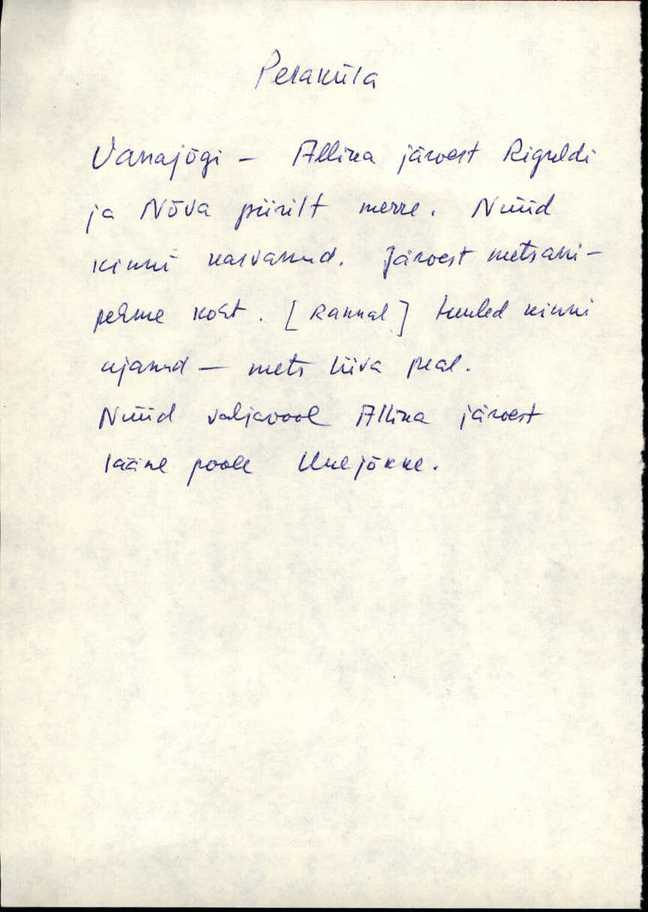 Peraküla
Vanajõgi – Allina järvest Riguldi
ja Nõva piirilt merre. Nüüd
kinni kasvanud. Järvest metsani –
pehme koht. [Rannal] tuuled kinni
ajanud – mets liiva peal.
Nüüd väljavool Allina järvest
lääne poole Uuejõkke.